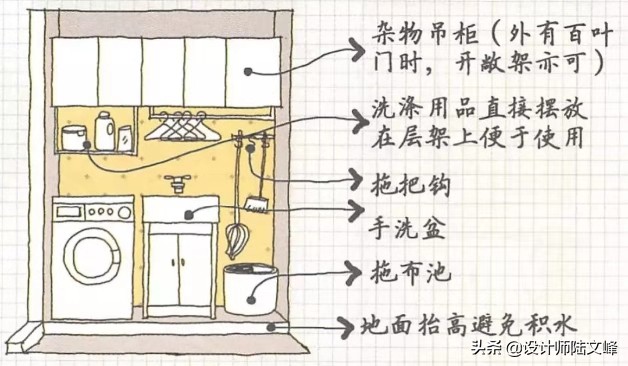 杂物吊柜（外有百叶
门时，开敞架亦可）
洗涤用品直接摆放
在层架上便于使用
拖把钩
手洗盆
拖布池
地面抬高避免积水
头条 @设计师陆文峰